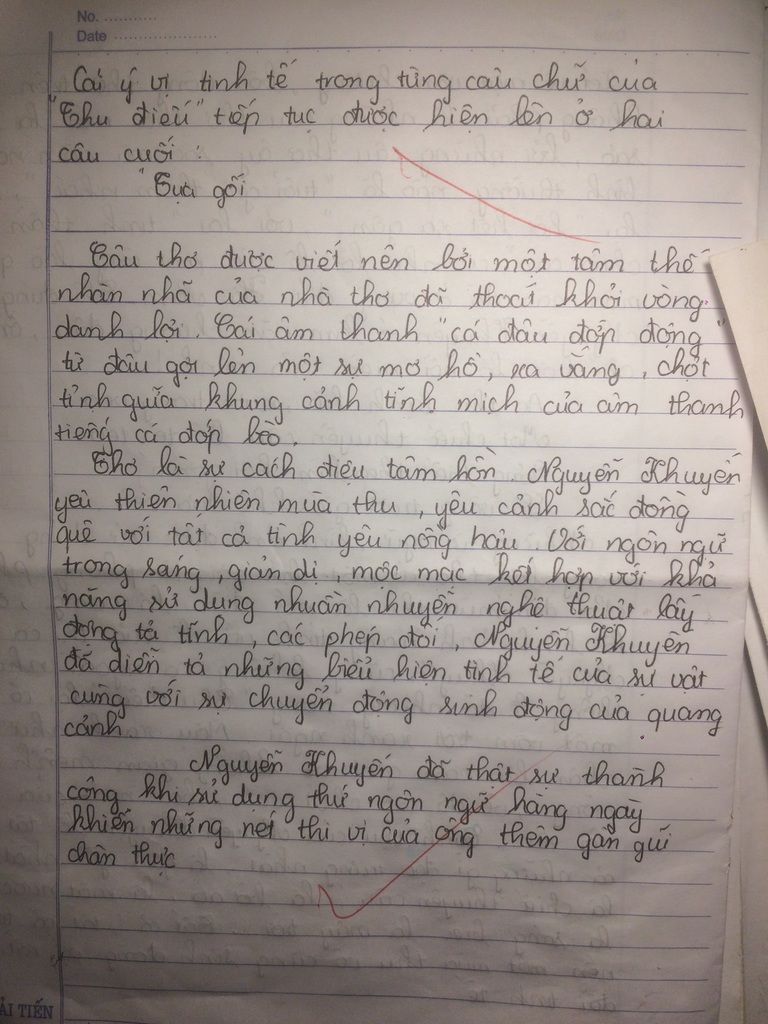 No. ............
Date ........................
Cái ý vị tinh tế trong từng câu chữ của
"Thu điếu" tiếp tục được hiện lên ở hai
câu cuối :
"Tựa gối
Câu thơ được viết nên bởi một tâm thế
nhàn nhã của nhà thơ đã thoát khỏi vòng
danh lợi. Cái âm thanh "cá đâu đớp động"
từ đâu gợi lên một sự mơ hồ, xa vắng, chợt
tỉnh giữa khung cảnh tĩnh mịch của âm thanh
tiếng cá đớp bèo.
Thơ là sự cách điệu tâm hồn. Nguyễn Khuyến
yêu thiên nhiên mùa thu, yêu cảnh sắc đồng
quê với tất cả tình yêu nồng hậu. Với ngôn ngữ
trong sáng, giản dị, mộc mạc kết hợp với khả
năng sử dụng nhuần nhuyễn nghệ thuật lấy
động tả tĩnh, các phép đối, Nguyễn Khuyến
đã diễn tả những biểu hiện tinh tế của sự vật
cùng với sự chuyển động sinh động của quang
cảnh
Nguyễn Khuyến đã thật sự thành
công khi sử dụng thứ ngôn ngữ hàng ngày
khiến những nét thi vị của ông thêm gần gũi
chân thực
ẢI TIẾN